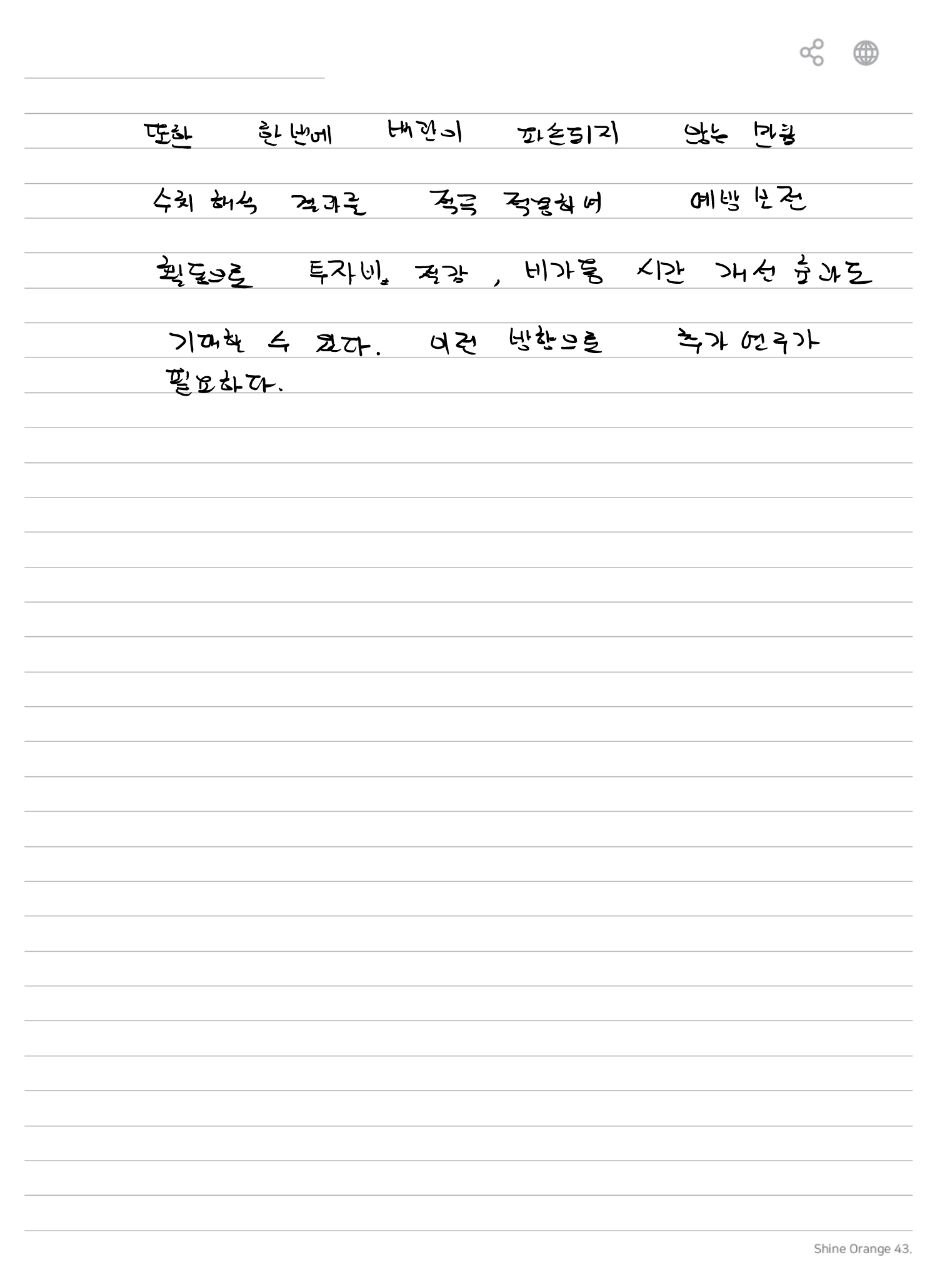 또한 한번에 배관이 파손되지 않는 만큼
수치 해석 결과를 적극 적용하여 예방 보전
활동으로 투자비 절감, 비가동 시간 개선 효과도
기대할 수 있다. 이런 방향으로 추가 연구가
필요하다.
Shine Orange 43.